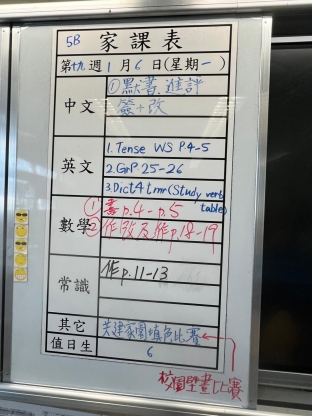 5B 家課表
第十九週1月6日(星期一)
中文
①默書、進評
簽+改
英文
1.Tense WS P.4-5
2.GrP.25-26
3.Dict4 tmr(Study verb table)
數學
①書p.4-p.5
②作改及作p.18-19
常識
作p.11-13
其它
共建家園填色比賽
校園壁畫比賽
值日生
6